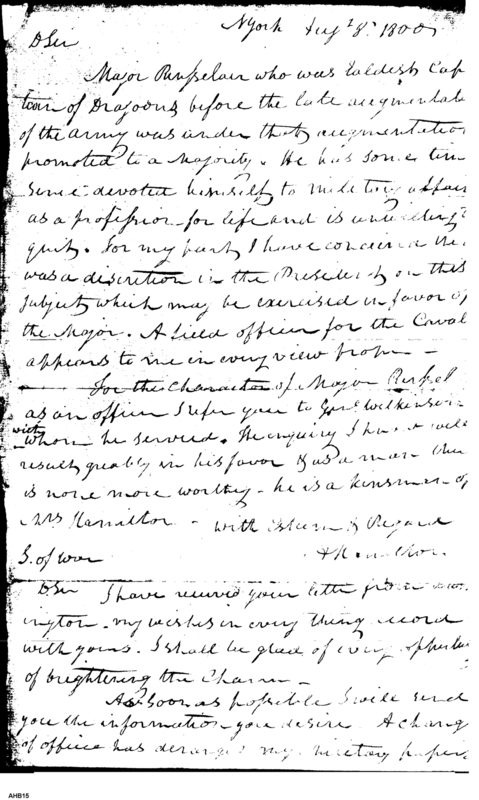 NYork Augt 8t 1800
DSir
Major Ransselair who was Eldest Cap
tain of Dragoons before the late augmentati
of the army was under that augmentation
promoted to a Majority. He has some tim
since devoted himself to military affair
as a profession for life and is unwilling t
quit. For my part I have conceived the
was a discretion in the President on this
subject which may be exercised in favor of
the Major. A field officer for the Caval
appears to me in every view proper
For the character of Major
as an officer I refer you to Genl Wilkinson
with whom he served. The enquiry I will
result greatly in his favor & as a man the
is none more worthy - he is a kinsman of
Mrs Hamilton - with Esteem & Regard
A Hamilton
S. of War
DSir I have received your letter from
ington - my wishes in every thing accord
with yours. I shall be glad of every opportun
of brightening the Chain -
As soon as possible I will send
you the information you desire. A chang
of office has deranged my military papers
AHB15